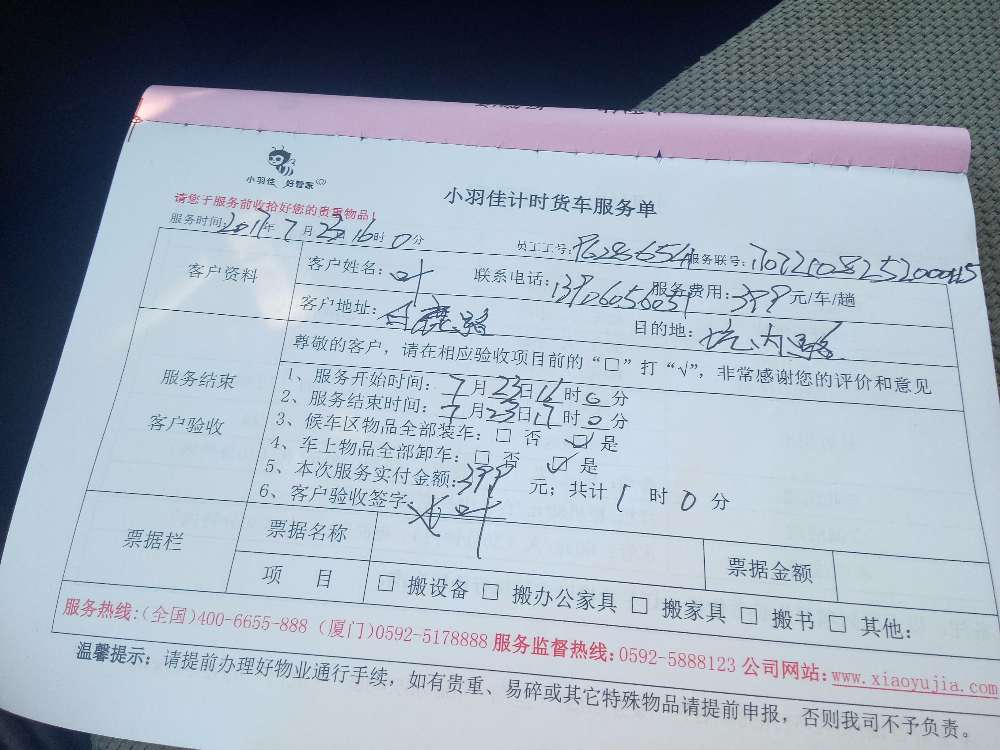 小羽佳 好管家
小羽佳计时货车服务单
请您于服务前收拾好您的贵重物品!
服务时间:2017年7月23日16时0分
员工工号: 服务联号:
客户资料
客户姓名:叶 联系电话: 服务费用:399元/车/趟
客户地址:白鹿路 目的地:坑内路
服务结束
客户验收
尊敬的客户,请在相应验收项目前的“□”打“√”,非常感谢您的评价和意见
1、服务开始时间:7月23日16时0分
2、服务结束时间:7月23日17时0分
3、候车区物品全部装车:□ 否 ☑ 是
4、车上物品全部卸车:□ 否 ☑ 是
5、本次服务实付金额:399元;共计1时0分
6、客户验收签字:叶
票据栏
票据名称 票据金额
项 目 □ 搬设备 □ 搬办公家具 □ 搬家具 □ 搬书 □ 其他:
服务热线:(全国)400-6655-888 (厦门)0592-5178888 服务监督热线:0592-5888123 公司网站:www.xiaoyujia.com
温馨提示:请提前办理好物业通行手续,如有贵重、易碎或其它特殊物品请提前申报,否则我司不予负责。